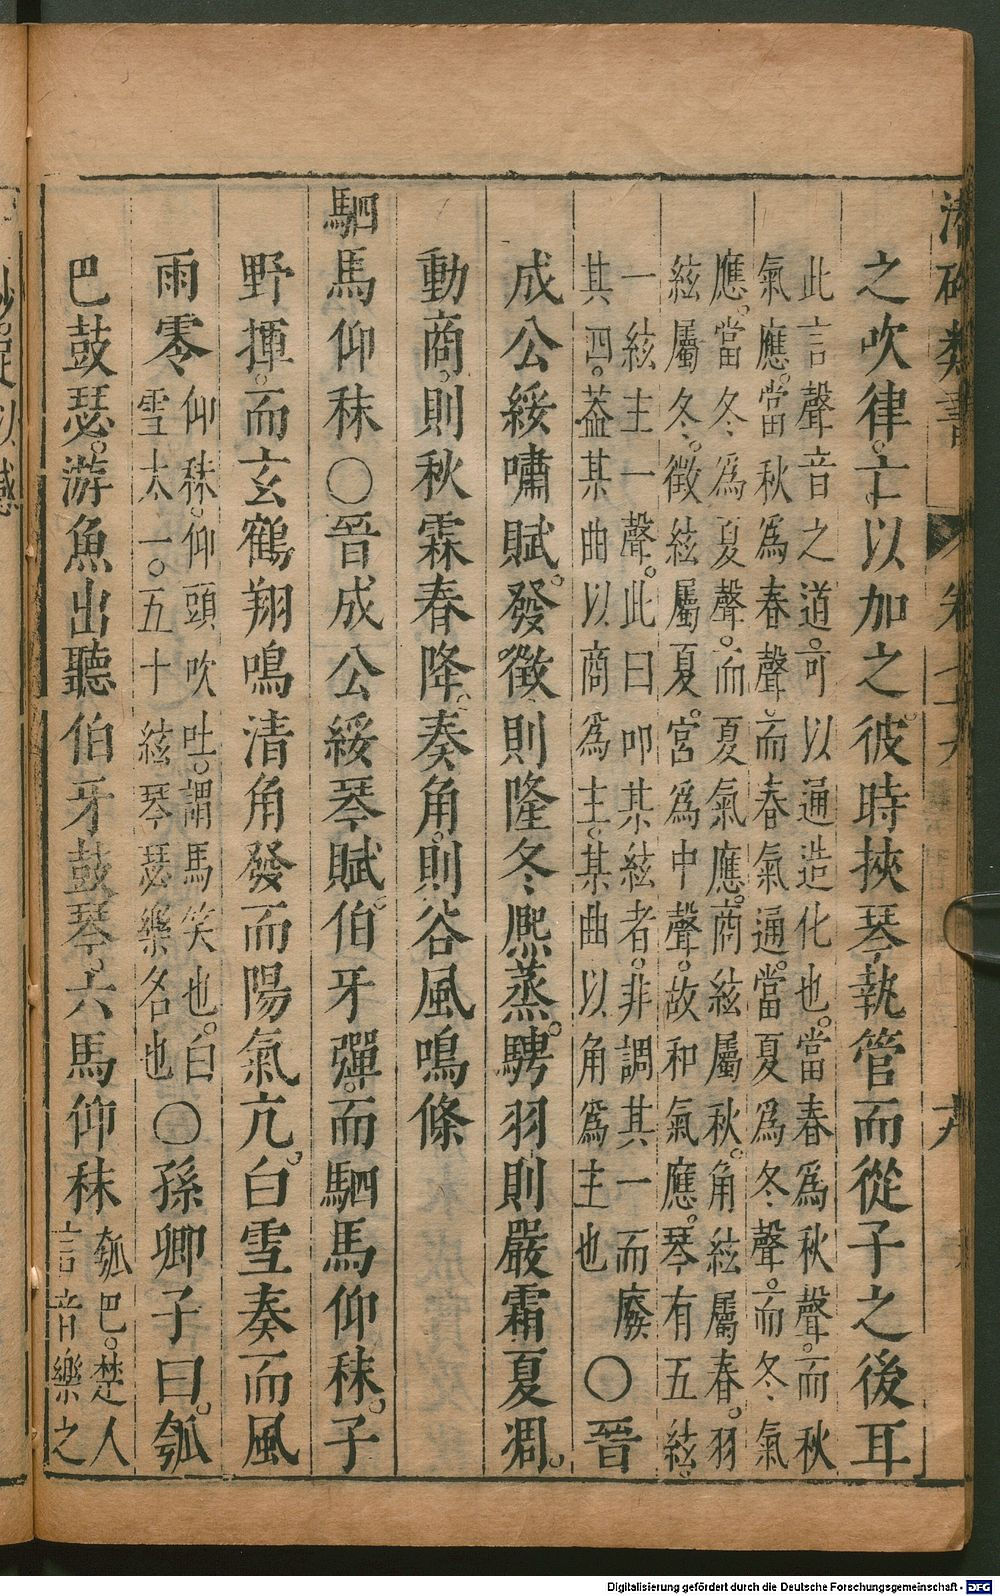 之吹律。亡以加之。彼時挾琴執管而從子之後耳
此言聲音之道。可以通造化也。當春為秋聲。而秋
氣應。當秋為春聲。而春氣通。當夏為冬聲。而冬氣
應。當冬為夏聲。而夏氣應。商絃屬秋。角絃屬春。羽
絃屬冬。徵絃屬夏。宮為中聲。故和氣應。琴有五絃。
一絃主一聲。此曰叩某絃者。非調其一而廢
其四。葢某曲以商為主。某曲以角為主也
○晉
成公綏嘯賦。發徵則隆冬熈蒸。騁羽則嚴霜夏凋。
動商。則秋霖春降。奏角。則谷風鳴條
駟馬仰秣○晉成公綏琴賦。伯牙彈。而駟馬仰秣。子
野揮。而玄鶴翔鳴清角發而陽氣亢。白雪奏而風
雨零
仰秣。仰頭吹吐。謂馬笑也。白
雪太一。五十絃琴瑟樂名也
○孫卿子曰。瓠
巴鼓瑟。游魚出聽伯牙鼓琴。六馬仰秣
瓠巴。楚人
言音樂之
卷
Digitalisierung gefördert durch die Deutsche Forschungsgemeinschaft - DFG